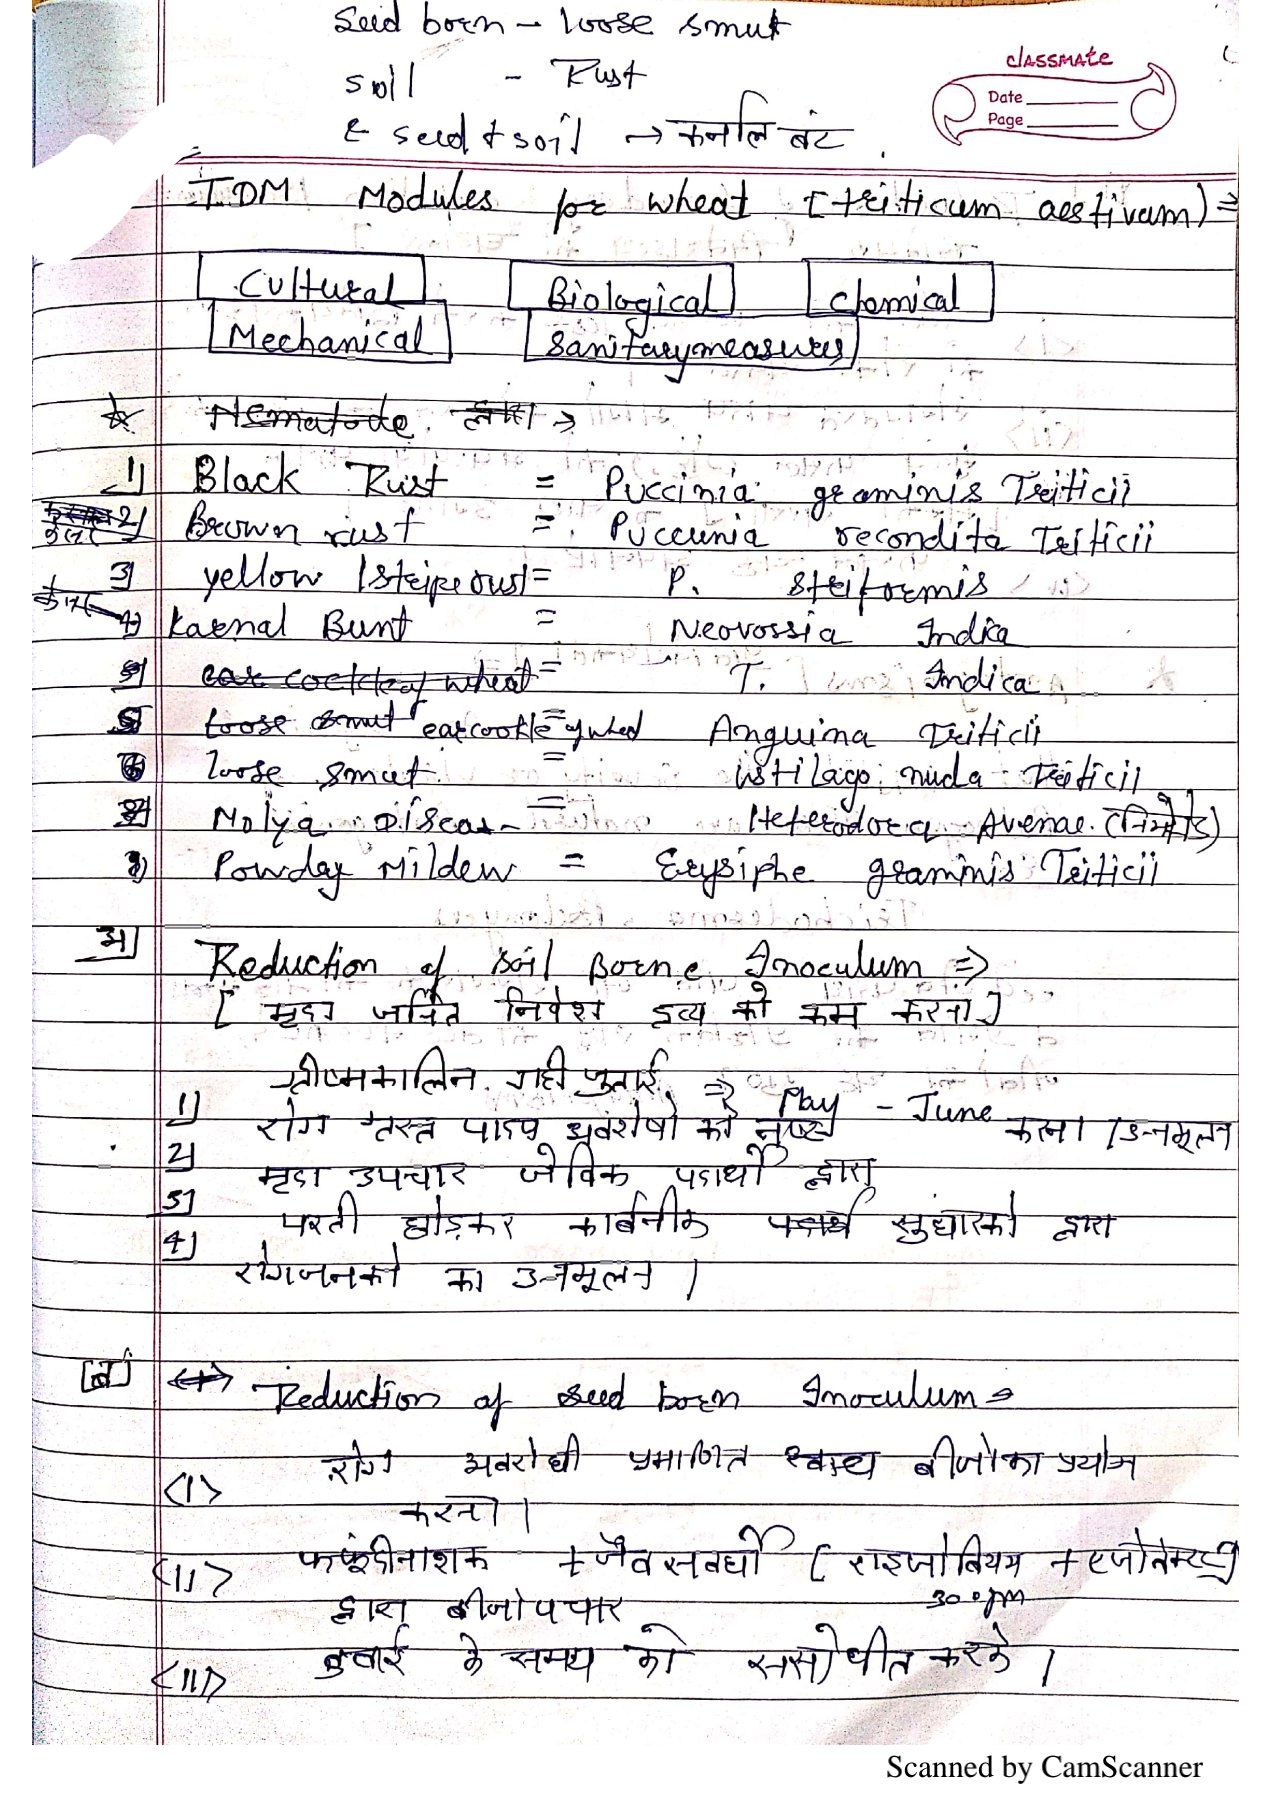 Seed born - loose smut
classmate
soil - Rust
Date
Page
& seed + soil → कर्नाल बंट
IDM Modules for wheat [triticum aestivum) ⇒
Cultural Biological Chemical
Mechanical Sanitary measures
☆ Nematode द्वारा ⇒
1) Black Rust = Puccinia graminis Triticii
2) Brown rust = Puccunia recondita Triticii
3) yellow / stripe rust = P. striformis
4) Karnal Bunt = Neovossia Indica
ear cockley wheat = T. Indica
5 loose smut ear cockle of whed = Anguina Triticii
6 loose smut = ustilago nuda Triticii
Molya Diseas - = Heterodora Avenae. (निमेटोड)
Powday Mildew = Erysiphe graminis Triticii
अ] Reduction of soil Borne Inoculum ⇒
[मृदा जनित निवेश द्रव्य को कम करना]
1) ग्रीष्मकालिन गहरी जुताई ⇒ May - June
2) रोग ग्रस्त पादप अवशेषो को नष्ट करना / उन्मूलन
3) मृदा उपचार जैविक पदार्थो द्वारा
4) परती छोड़कर कार्बनीक पदार्थ सुधारको द्वारा
रोगजनको का उन्मूलन।
[ब] Reduction of seed born Inoculum ⇒
(I) रोग अवरोधी प्रमाणित स्वस्थ बीजो का प्रयोग
करना।
(II) फफूंदीनाशक + जैव सवर्धो [राइजोबियम + एजोटोबेक्टर]
द्वारा बीजोपचार 30 gm
(III) बुवाई के समय को संसोधीत करके।
Scanned by CamScanner